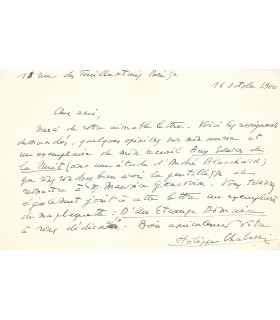 12 rue des Feuillantines Paris 5e
16 octobre 1960
Cher ami,
Merci de votre aimable lettre. Voici les renseignements
demandés, quelques opinions sur mon œuvre et
un exemplaire de mon recueil Aux Sources de
la Nuit (avec une étude d'André Blanchard)
que vous voudrez bien avoir la gentillesse de
remettre à M. Maurice Genevoix. Vous trouverez
également joint à cette lettre un exemplaire
de ma plaquette : D'Un Etrange Domaine
à vous dédicacé. Bien amicalement vôtre
Philippe Chabaneix